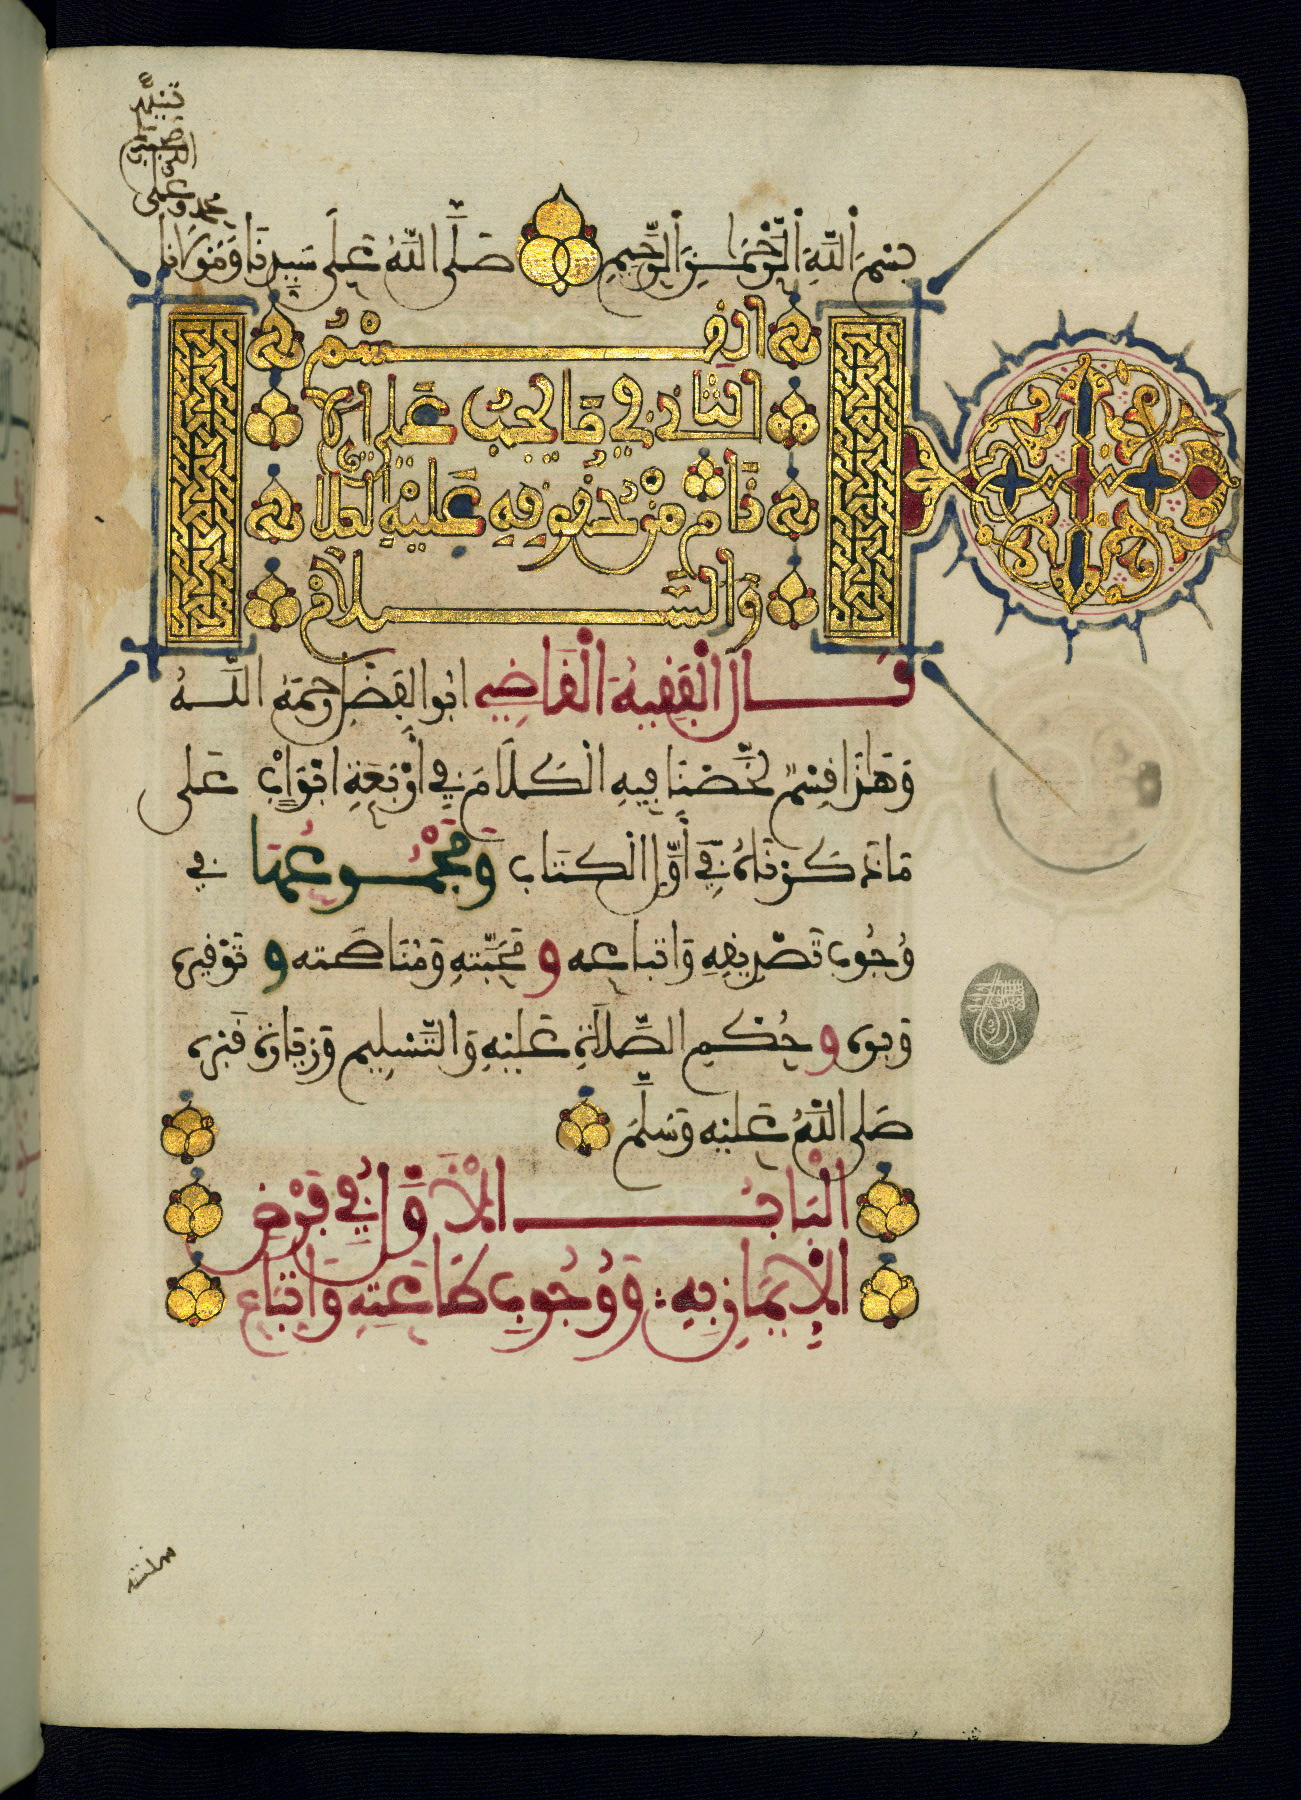 بِسْمِ اللَّهِ الرَّحْمَٰنِ الرَّحِيمِ صَلَّى اللَّهُ عَلَى سَيِّدِنَا وَمَوْلَانَا
محمد وعلى
القِسْمُ
الثاني في مَا يَجِبُ عَلَى الأَ
نَامِ مِنْ حُقُوقِهِ عَلَيْهِ الصَّلَا
وَالسَّلَامُ
قَالَ الْفَقِيهُ الْقَاضِي أبُو الْفَضْلِ رَحِمَهُ اللَّهُ
وَهَذَا قِسْمٌ لَخَّصْنَا فِيهِ الْكَلَامَ فِي أَرْبَعَةِ أَبْوَابٍ عَلَى
مَا ذَكَرْنَاهُ فِي أَوَّلِ الْكِتَابِ وَمَجْمُوعُهَا فِي
وُجُوبِ تَصْدِيقِهِ وَاتِّبَاعِهِ وَمَحَبَّتِهِ وَمُنَاصَحَتِهِ وَتَوْقِيرِهِ
وَبِرِّهِ وَحُكْمِ الصَّلَاةِ عَلَيْهِ وَالتَّسْلِيمِ وَزِيَارَةِ قَبْرِهِ
صَلَّى اللَّهُ عَلَيْهِ وَسَلَّمَ
الْبَابُ الْأَوَّلُ فِي فَرْضِ
الْإِيمَانِ بِهِ وَوُجُوبِ طَاعَتِهِ وَاتِّبَاعِ
سنته